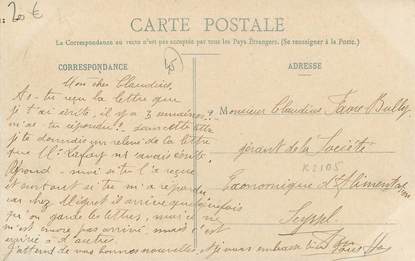 20 €
CARTE POSTALE
La Correspondance au recto n'est pas acceptée par tous les Pays Étrangers. (Se renseigner à la Poste.)
CORRESPONDANCE
45
Mon cher Claudius,
As-tu reçu la lettre que
je t'ai écrite, il y a 3 semaines?
m'as-tu répondu? dans cette lettre
je te donnais un relevé de la lettre
que Mr m'avait écrite.
Réponds-moi si tu l'as reçue
et surtout si tu m'as répondu
car chez il arrive quelquefois
qu'on garde les lettres, moi ce ne
m'est pas arrivé mais c'est
arrivé à d'autres.
J'attends de vos bonnes nouvelles,
ADRESSE
Monsieur Claudius Favre Bully
gérant de la Société
K2105
Economique d'Alimentation
Seyssel